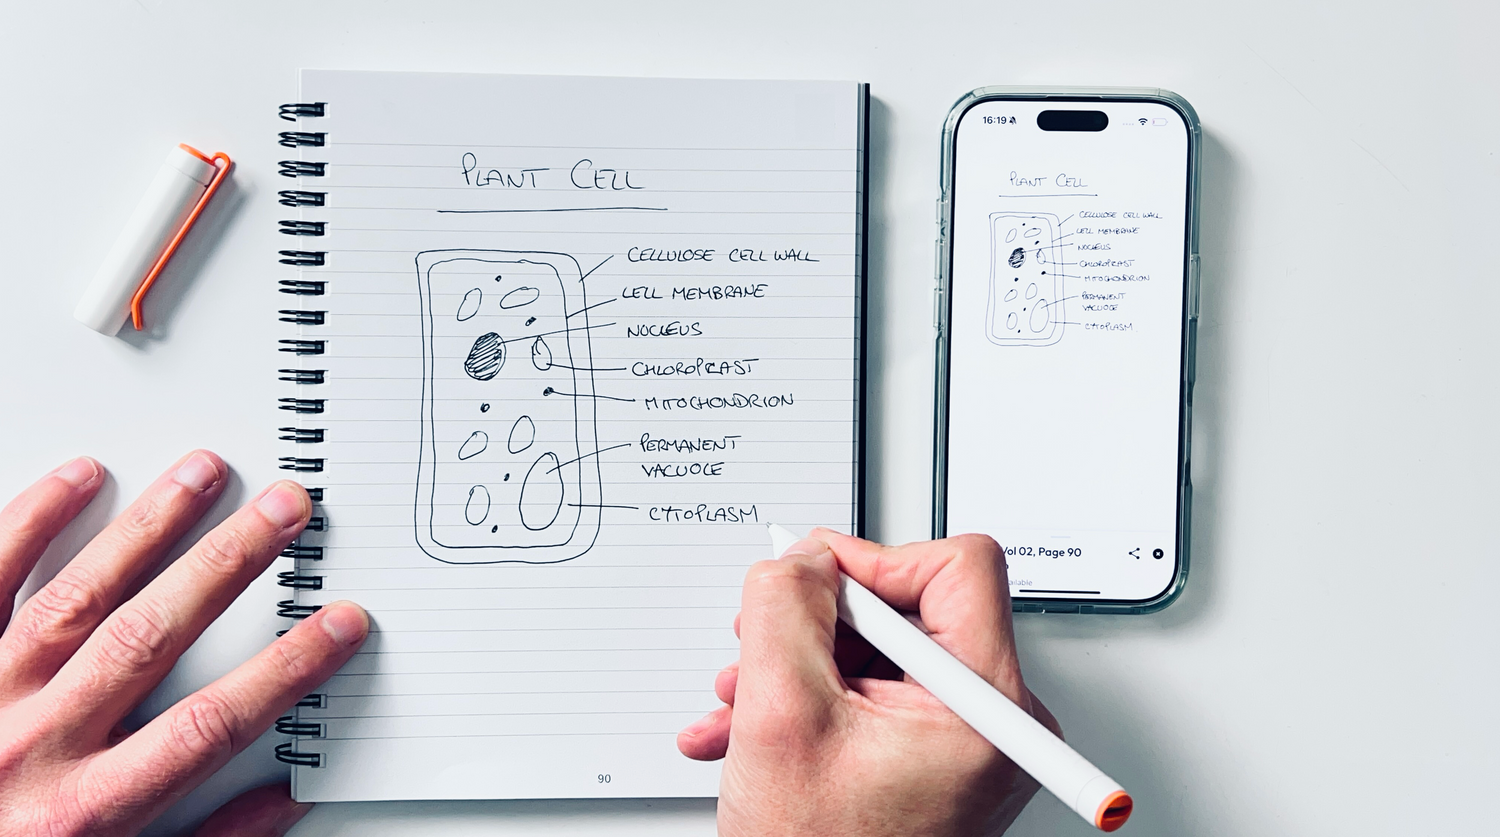 PLANT CELL
CELLULOSE CELL WALL
CELL MEMBRANE
NUCLEUS
CHLOROPLAST
MITOCHONDRION
PERMANENT
VACUOLE
CYTOPLASM
90
16:19
PLANT CELL
CELLULOSE CELL WALL
CELL MEMBRANE
NUCLEUS
CHLOROPLAST
MITOCHONDRION
PERMANENT
VACUOLE
CYTOPLASM
Vol 02, Page 90